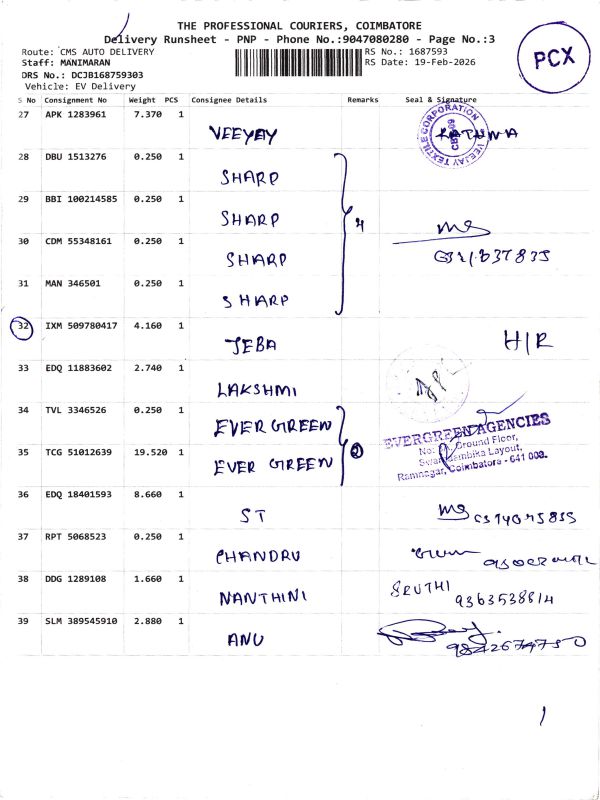 THE PROFESSIONAL COURIERS, COIMBATORE
Delivery Runsheet - PNP - Phone No.:9047080280 - Page No.:3
Route: CMS AUTO DELIVERY
RS No.: 1687593
Staff: MANIMARAN
RS Date: 19-Feb-2026
DRS No.: DCJB168759303
Vehicle: EV Delivery
PCX
S No Consignment No Weight PCS Consignee Details Remarks Seal & Signature
27 APK 1283961 7.370 1
VEEJAY TEXTILE CORPORATION
VEEYEY
28 DBU 1513276 0.250 1
SHARP
29 BBI 100214585 0.250 1
SHARP
4
30 CDM 55348161 0.250 1
SHARP
31 MAN 346501 0.250 1
SHARP
32 IXM 509780417 4.160 1
JEBA H/R
33 EDQ 11883602 2.740 1
LAKSHMI
34 TVL 3346526 0.250 1
EVER GREEN
EVERGREEN AGENCIES
35 TCG 51012639 19.520 1
EVER GREEN 2
Ground Floor,
Layout,
Ramnagar, Coimbatore - 641 009.
36 EDQ 18401593 8.660 1
ST
37 RPT 5068523 0.250 1
CHANDRU
38 DDG 1289108 1.660 1
NANTHINI SRUTHI
9363538814
39 SLM 389545910 2.880 1
ANU
9842674750